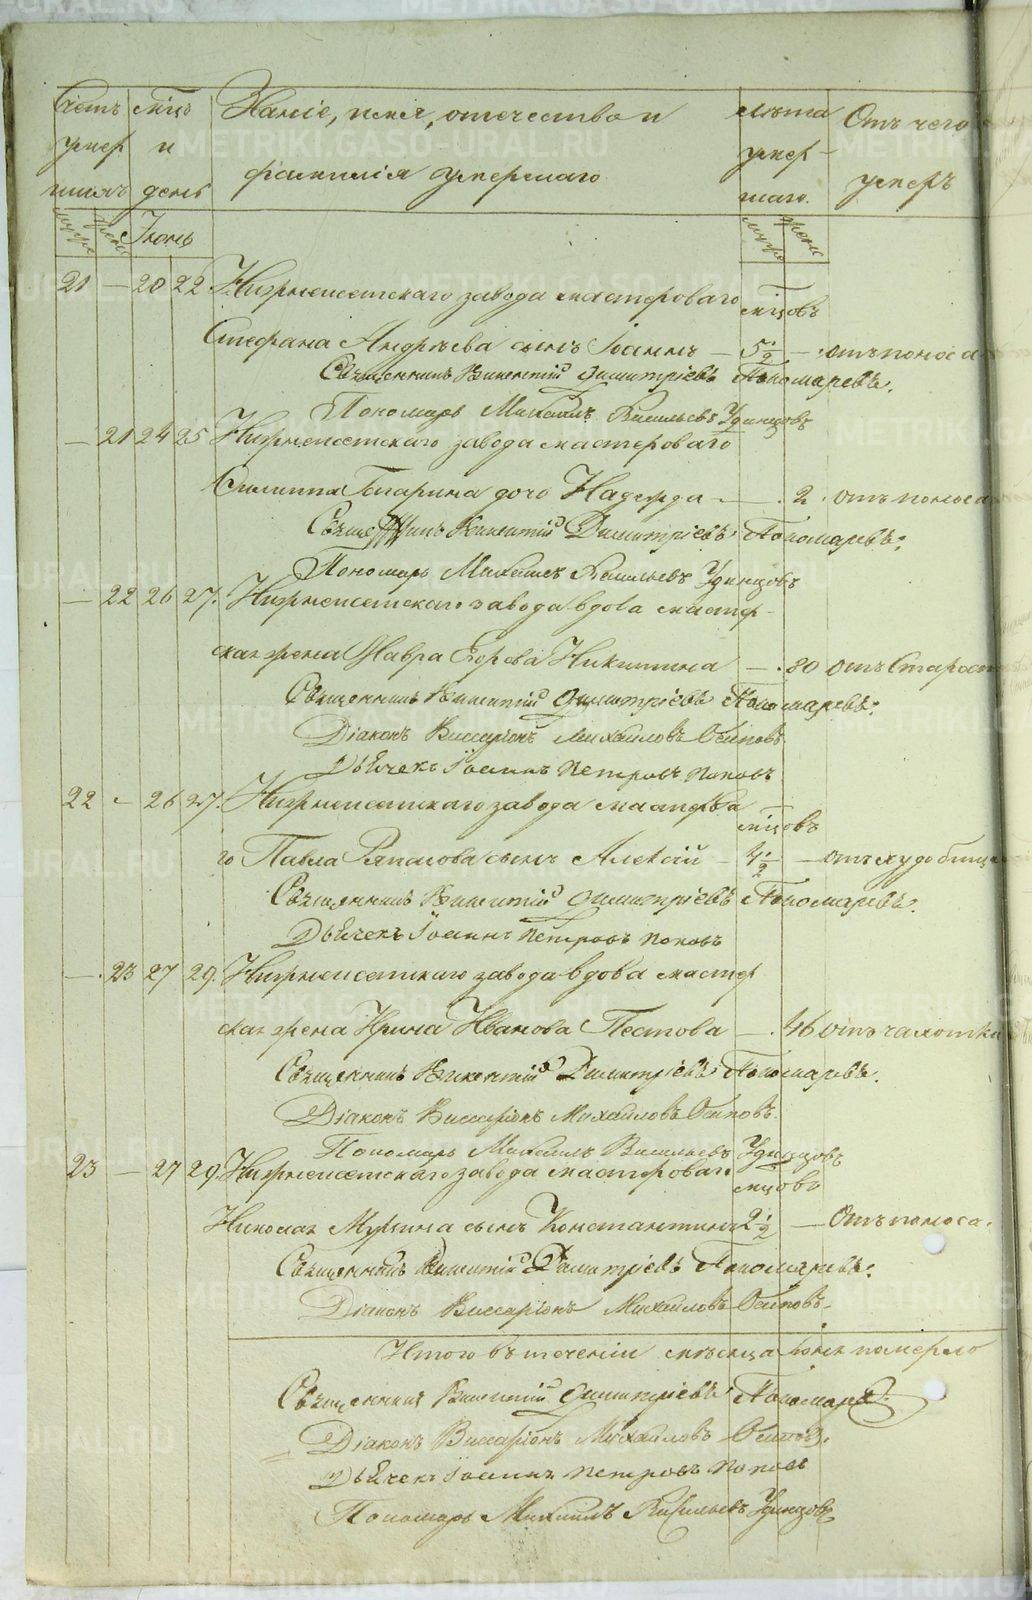 Счетъ мцъ Званіе, имя, отечество и лѣта Отъ чего
умер и умер-
шихъ день фамилія умершаго шаго. умеръ
муж жен Іюнь муж жен
21 — 20 22 Нижнеисетскаго завода мастероваго мцовъ
Стефана Андрѣева сынъ Іоаннъ — 5 1/2 — отъ поноса
Священникъ Викентій Димитріевъ Пономаревъ.
Пономарь Михаилъ Васильевъ Удинцовъ
— 21 24 25 Нижнеисетскаго завода мастероваго
дочь Надежда — 2 отъ поноса
Священникъ Викентій Димитріевъ Пономаревъ.
Пономарь Михаилъ Васильевъ Удинцовъ
— 22 26 27. Нижнеисетскаго завода вдова мастер-
ская жена Мавра Егорова Никитина — 80 отъ Старост
Священникъ Викентій Димитріевъ Пономаревъ.
Діаконъ Виссаріонъ Михайловъ Осиповъ
Дьячекъ Іоаннъ Петровъ Поповъ
22 — 26 27. Нижнеисетскаго завода мастерова мцовъ
го Павла сынъ Алексій — 4 1/2 — отъ худобища
Священникъ Викентій Димитріевъ Пономаревъ.
Дьячекъ Іоаннъ Петровъ Поповъ
— 23 27 29. Нижнеисетскаго завода вдова мастер
ская жена Ирина Иванова Пестова — 46 отъ чахотки
Священникъ Викентій Димитріевъ Пономаревъ.
Діаконъ Виссаріонъ Михайловъ Осиповъ.
Пономарь Михаилъ Васильевъ Удинцовъ
23 — 27 29. Нижнеисетскаго завода мастероваго мцовъ
Николая сынъ Константинъ 2 1/2 — Отъ поноса.
Священникъ Викентій Димитріевъ Пономаревъ.
Діаконъ Виссаріонъ Михайловъ Осиповъ.
Итого въ теченіи мѣсяца Іюня померло
Священникъ Викентій Димитріевъ Пономаревъ.
Діаконъ Виссаріонъ Михайловъ Осиповъ.
Дьячекъ Іоаннъ Петровъ Поповъ
Пономарь Михаилъ Васильевъ Удинцовъ
METRIKI.GASO-URAL.RU